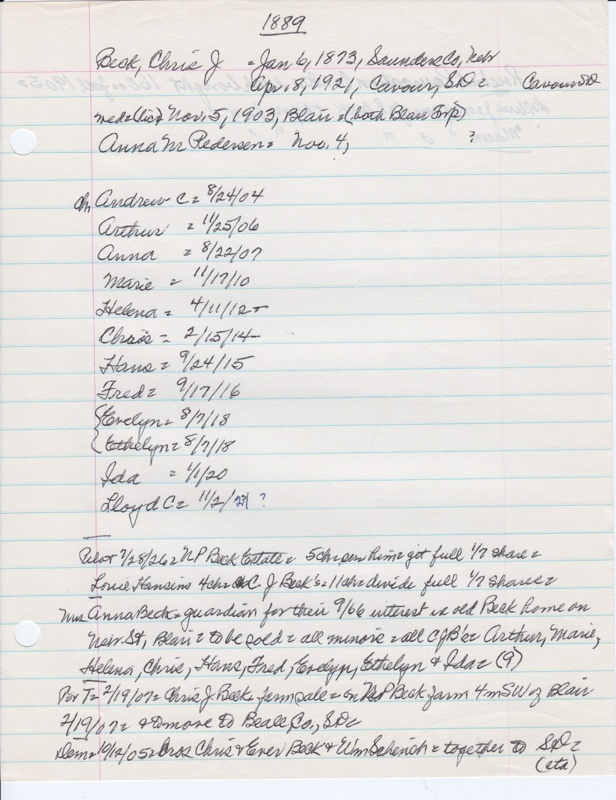 1889
Beck, Chris J = Jan 6, 1873, Saunders Co, Nebr
Apr. 8, 1921, Cavour, S.D. = Cavour SD
med = (lic) Nov. 5, 1903, Blair = (both Blair Twp)
Anna M Pedersen = Nov. 4, ?
Ch, Andrew C = 8/24/04
Arthur = 11/25/06
Anna = 8/22/07
Marie = 11/17/10
Helena = 4/11/12
Chris = 2/15/14
Hans = 9/24/15
Fred = 9/17/16
Evelyn = 8/7/18
Ethelyn = 8/7/18
Ida = 1/1/20
Lloyd C = 11/2/21 ?
Pilot 7/28/26 = NP Beck Estate = 5 ch get full 1/7 share =
Louie Hansins 4 ch = C J Beck's = 11 ch = divide full 1/7 shares =
Mrs Anna Beck = guardian for their 9/66 interest in old Beck home on
Nebr St, Blair = to be sold = all minors = all CJB's = Arthur, Marie,
Helena, Chris, Hans, Fred, Evelyn, Ethelyn & Ida = (9)
T = 2/19/07 = Chris J Beck = farm sale = on NP Beck farm 4 m SW of Blair
2/19/07 = & to move to Co, SD =
Dem = 10/12/05 = Bros Chris & Beck & Wm = together to SD =